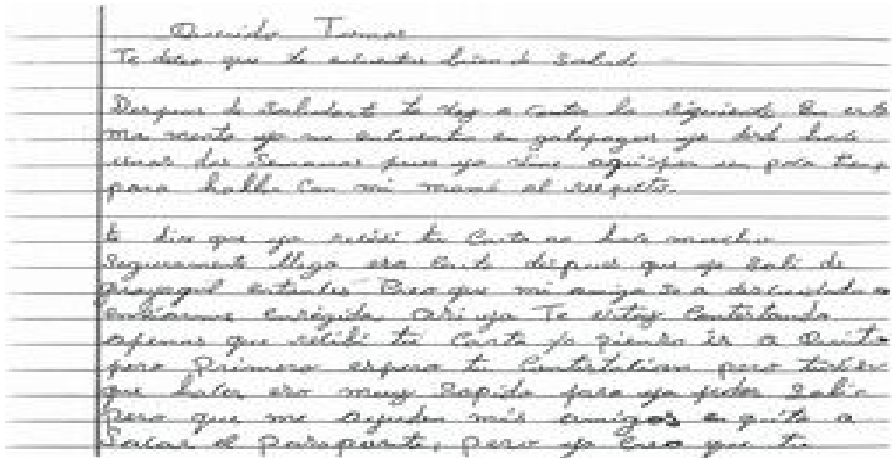 Querido Tomas
Te deseo que te encuentres bien de Salud
Despues de Saludart te voy a conta lo siguiente En este
momento yo me encuentro en galapagos yo desde hace
unas dos Semanas pues yo vine aqui por un poco tiemp
para habla con mi mamá al respecto.
te dire que yo recibi tu Carta no hace mucho
Seguramente llego esa Carta despues que yo Sali de
guayaquil entonces Creo que mi amiga se a descuidado
enviarme enseguida asi ya Te estoy Contestando
apenas que recibi tu Carta yo pienso ir a Quito
pero Primero espero tu Contestation pero tienes
que hacer eso muy Rapido para yo poder Sali
Pero que me ayuden mis amigos en quito a
Sacar el pasaporte, pero yo Creo que tu